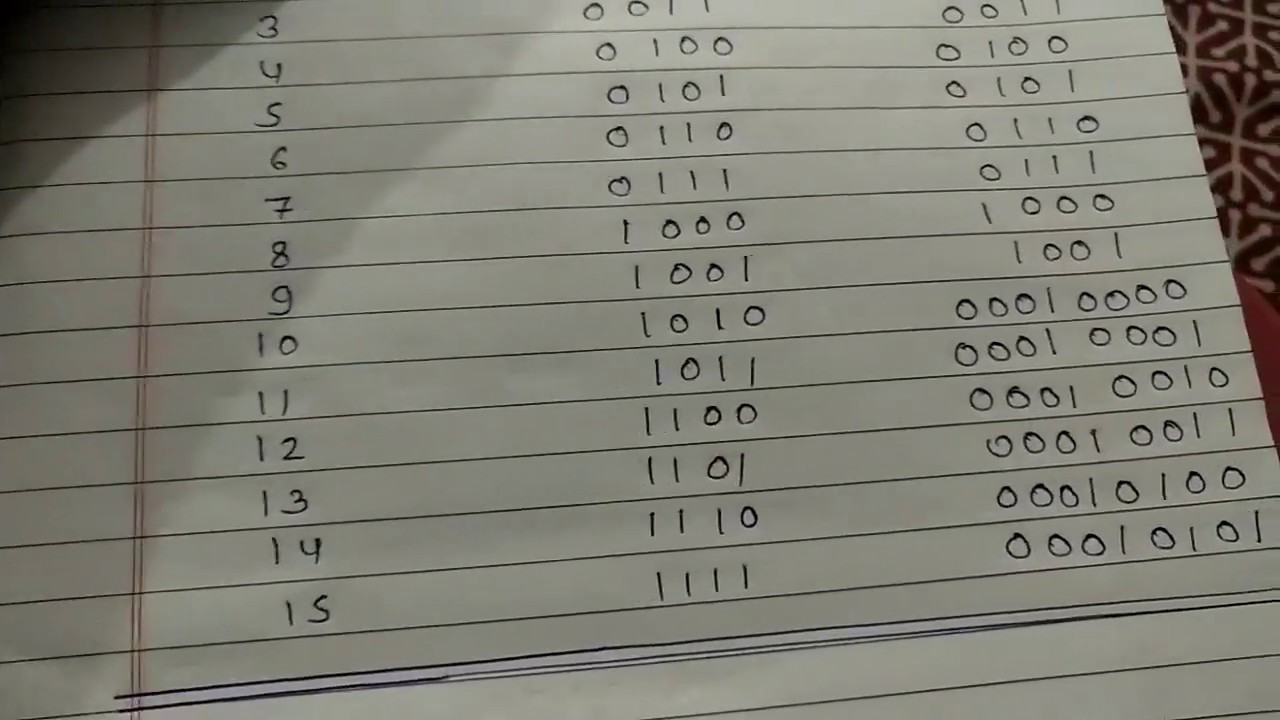 3 0011 0011
4 0100 0100
5 0101 0101
6 0110 0110
7 0111 0111
8 1000 1000
9 1001 1001
10 1010 00010000
11 1011 0001 0001
12 1100 0001 0010
13 1101 0001 0011
14 1110 00010100
15 1111 00010101